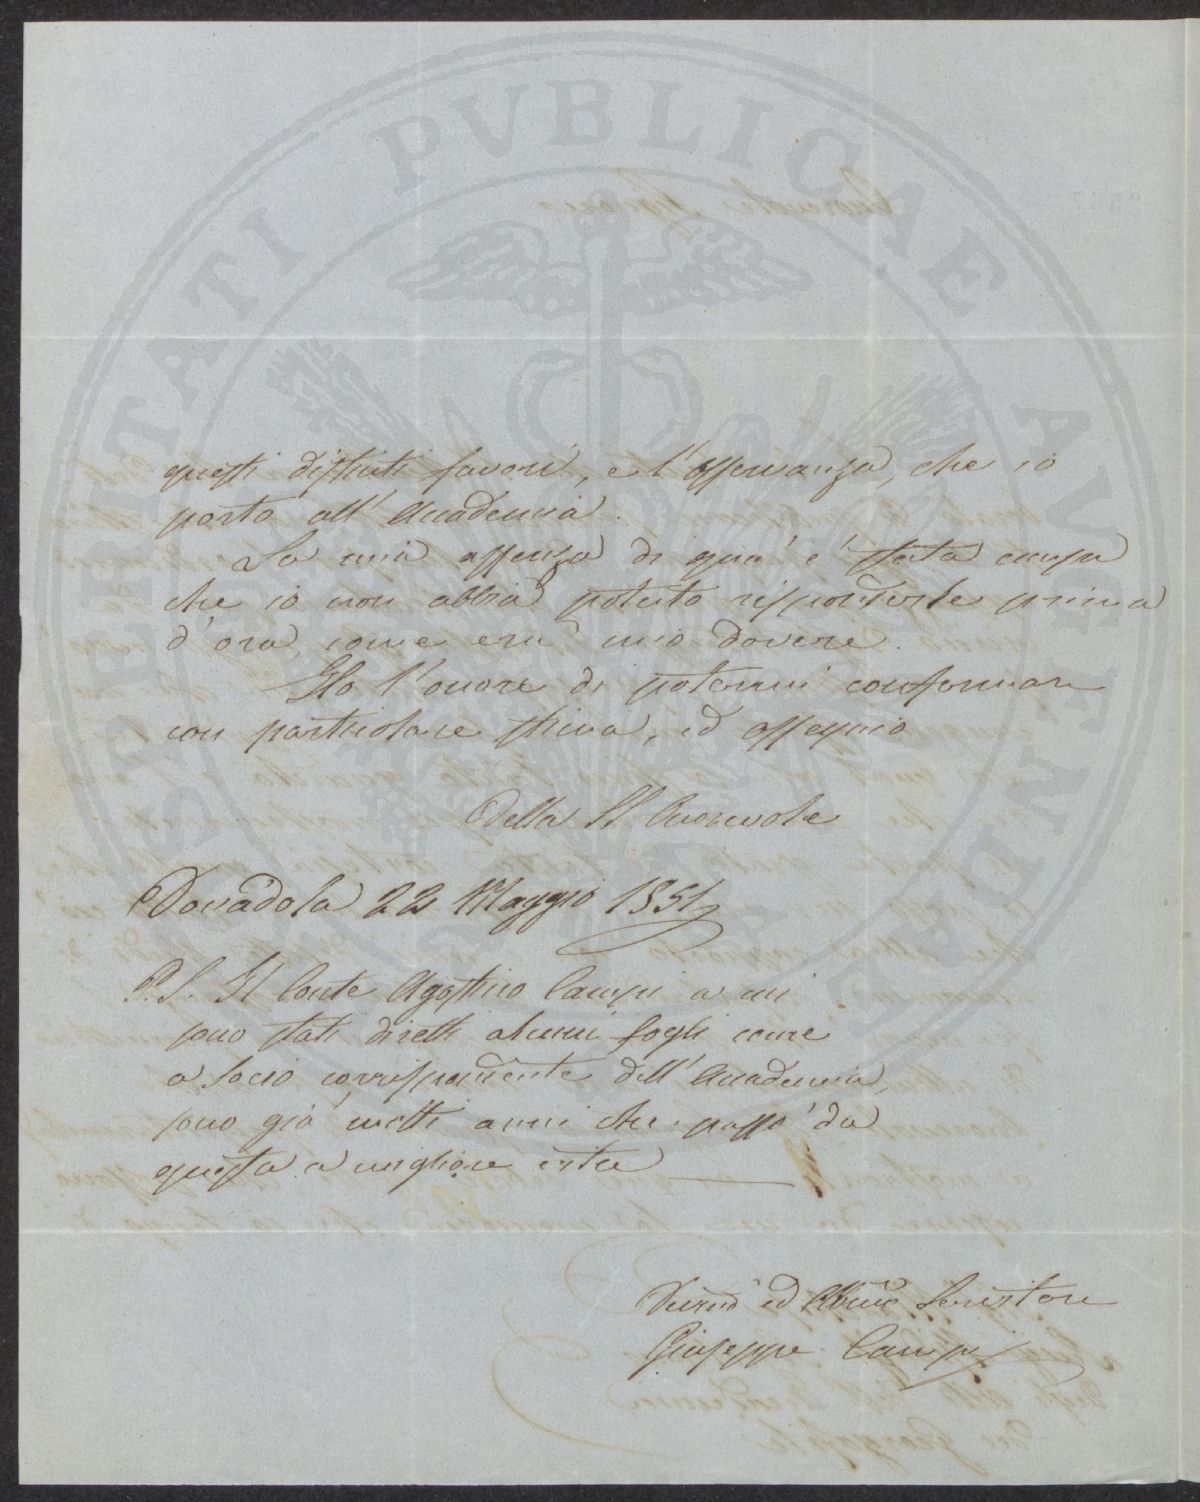 PROSPERITATI PUBLICAE AUGENDAE
questi distinti favori, e l'osservanza, che io
porto all'Accademia.
La mia assenza di quà è stata causa
che io non abbia potuto risponderle prima
d'ora, come era mio dovere.
Ho l'onore di potermi confermare
con particolare stima, ed ossequio
Della SV Onorevole
Dovadola 22 Maggio 1851
P.S. Il Conte Agostino Campi a cui
sono stati diretti alcuni fogli come
a Socio corrispondente dell'Accademia,
sono già molti anni che passò da
questa a migliore vita
Devmo ed Obbmo Servitore
Giuseppe Campi